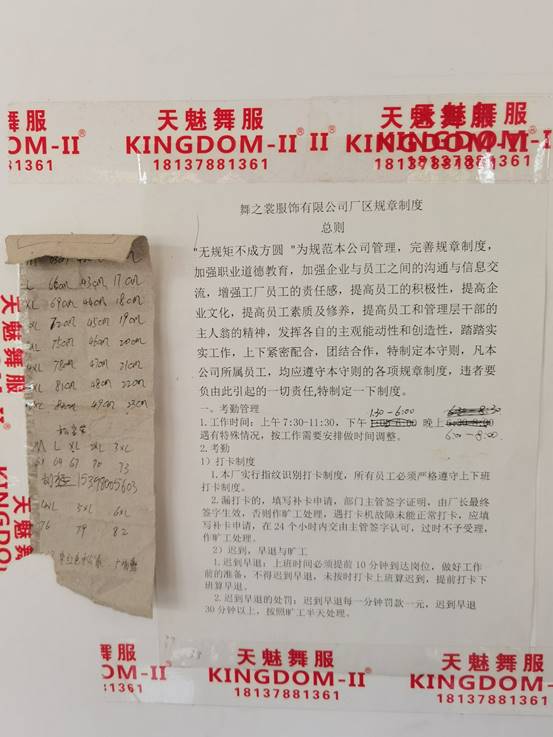 天魅舞服
KINGDOM-II®
18137881361
舞之裳服饰有限公司厂区规章制度
总则
"无规矩不成方圆 "为规范本公司管理，完善规章制度，
加强职业道德教育，加强企业与员工之间的沟通与信息交
流，增强工厂员工的责任感，提高员工的积极性，提高企
业文化，提高员工素质及修养，提高员工和管理层干部的
主人翁的精神，发挥各自的主观能动性和创造性，踏踏实
实工作，上下紧密配合，团结合作，特制定本守则，凡本
公司所属员工，均应遵守本守则的各项规章制度，违者要
负由此引起的一切责任,特制定一下制度。
一、考勤管理
1.工作时间：上午7:30-11:30，下午 1:30-6:00 晚上 6:00-8:00.
遇有特殊情况，按工作需要安排做时间调整。
2.考勤
1）打卡制度
1.本厂实行指纹识别打卡制度，所有员工必须严格遵守上下班
打卡制度。
2.漏打卡的，填写补卡申请，部门主管签字证明，由厂长最终
签字生效，否则作旷工处理，遇打卡机故障未能正常打卡，应填
写补卡申请，在24个小时内交由主管签字认可，过时不予受理，
作旷工处理。
2）迟到，早退与旷工
1.迟到早退：上班时间必须提前10分钟到达岗位，做好工作
前的准备，不得迟到早退，未按时打卡上班算迟到，提前打卡下
班算早退。
2.迟到早退的处罚：迟到早退每一分钟罚款一元，迟到早退
30分钟以上，按照旷工半天处理。
L 66cm 43cm 17cm
XL 69cm 44cm 18cm
72cm 45cm 19cm
75cm 46cm 20cm
4XL 78cm 47cm 21cm
81cm 48cm 22cm
49cm 23cm
M L XL 2XL 3XL
64 67 70 73
15398005603
4XL 5XL 6XL
76 79 82
天魅舞服
KINGDOM-II®
18137881361
天魅舞服
KINGDOM-II
18137881361